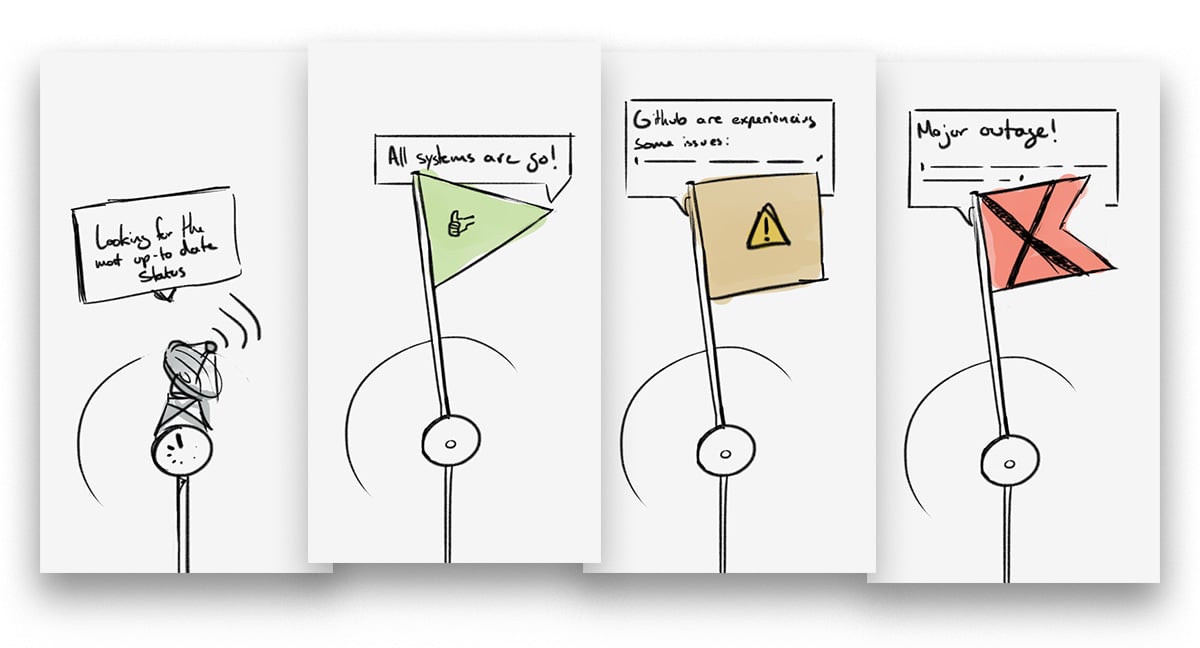 Looking for the
most up-to date
Status
All systems are go!
Github are experiencing
some issues:
Major outage!